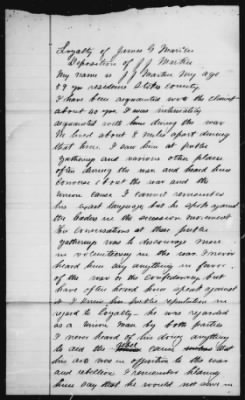 Loyalty of James G Martin
Deposition of J J Martin
My name is J J Martin My age
59 yrs residence county
I have been acquainted with the claimant
about 40 yrs. I was intimately
acquainted with him during the war
We lived about 8 miles apart during
that time. I saw him at public
gatherings and various other places
often during the war and heard him
converse about the war and the
Union cause I cannot remember
his exact language but he spoke against
the leaders in the secession movement
His conversations at these public
gatherings was to discourage men
in volunteering in the war. I never
heard him say anything in favor
of the war or the Confederacy but
have often heard him speak against
it I knew his public reputation in
regard to loyalty. he was regarded
as a Union man by both parties
I never heard of his doing anything
to aid the rebel cause
his were in opposition to the war
and rebellion I remember hearing
him say that he would not serve in